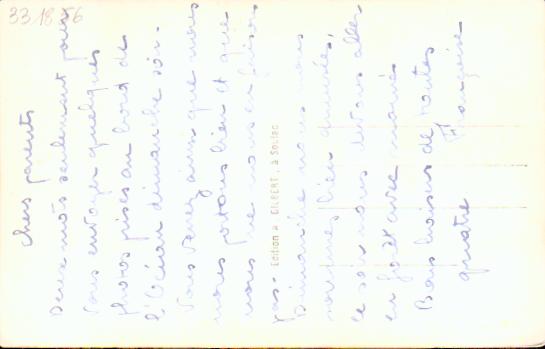 33 18 56
Chers parents
Deux mots seulement pour
vous envoyer quelques
photos prises au bord de
l'Océan dimanche soir.
Vous verrez ainsi que nous
nous portons bien et que
nous ne nous en faisons
pas.
Dimanche nous nous
sommes bien amusés,
ce soir nous devons aller
en avec
Bons baisers de toutes
quatre
Françoise
Edition GILBERT, à Soulac